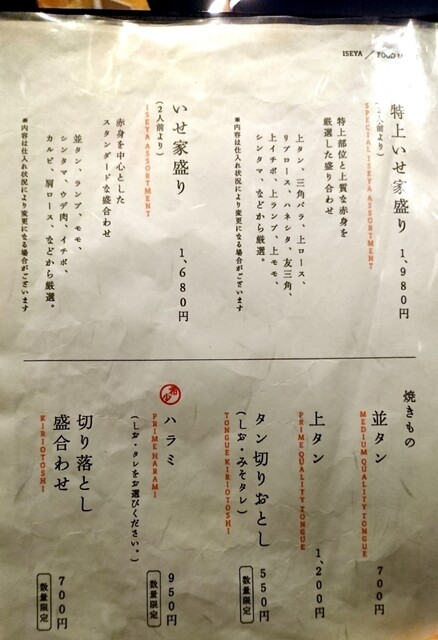 ISEYA / FOOD
特上いせ家盛り 1,980円
(2人前より)
SPECIAL ISEYA ASSORTMENT
特上部位と上質な赤身を
厳選した盛り合わせ
上タン、三角バラ、上ロース、
リブロース、ハネシタ、友三角、
上イチボ、上ランプ、上モモ、
シンタマ、などから厳選。
※内容は仕入れ状況により変更になる場合がございます
いせ家盛り 1,680円
(2人前より)
ISEYA ASSORTMENT
赤身を中心とした
スタンダードな盛合わせ
並タン、ランプ、モモ、
シンタマ、ウデ肉、イチボ、
カルビ、肩ロース、などから厳選。
※内容は仕入れ状況により変更になる場合がございます
焼きもの
並タン 700円
MEDIUM QUALITY TONGUE
上タン 1,200円
PRIME QUALITY TONGUE
タン切りおとし 550円
(しお・みそタレ) 数量限定
TONGUE KIRIOTOSHI
希少 ハラミ 950円
PRIME HARAMI 数量限定
(しお・タレをお選びください。)
切り落とし
盛合わせ 700円
KIRIOTOSHI 数量限定